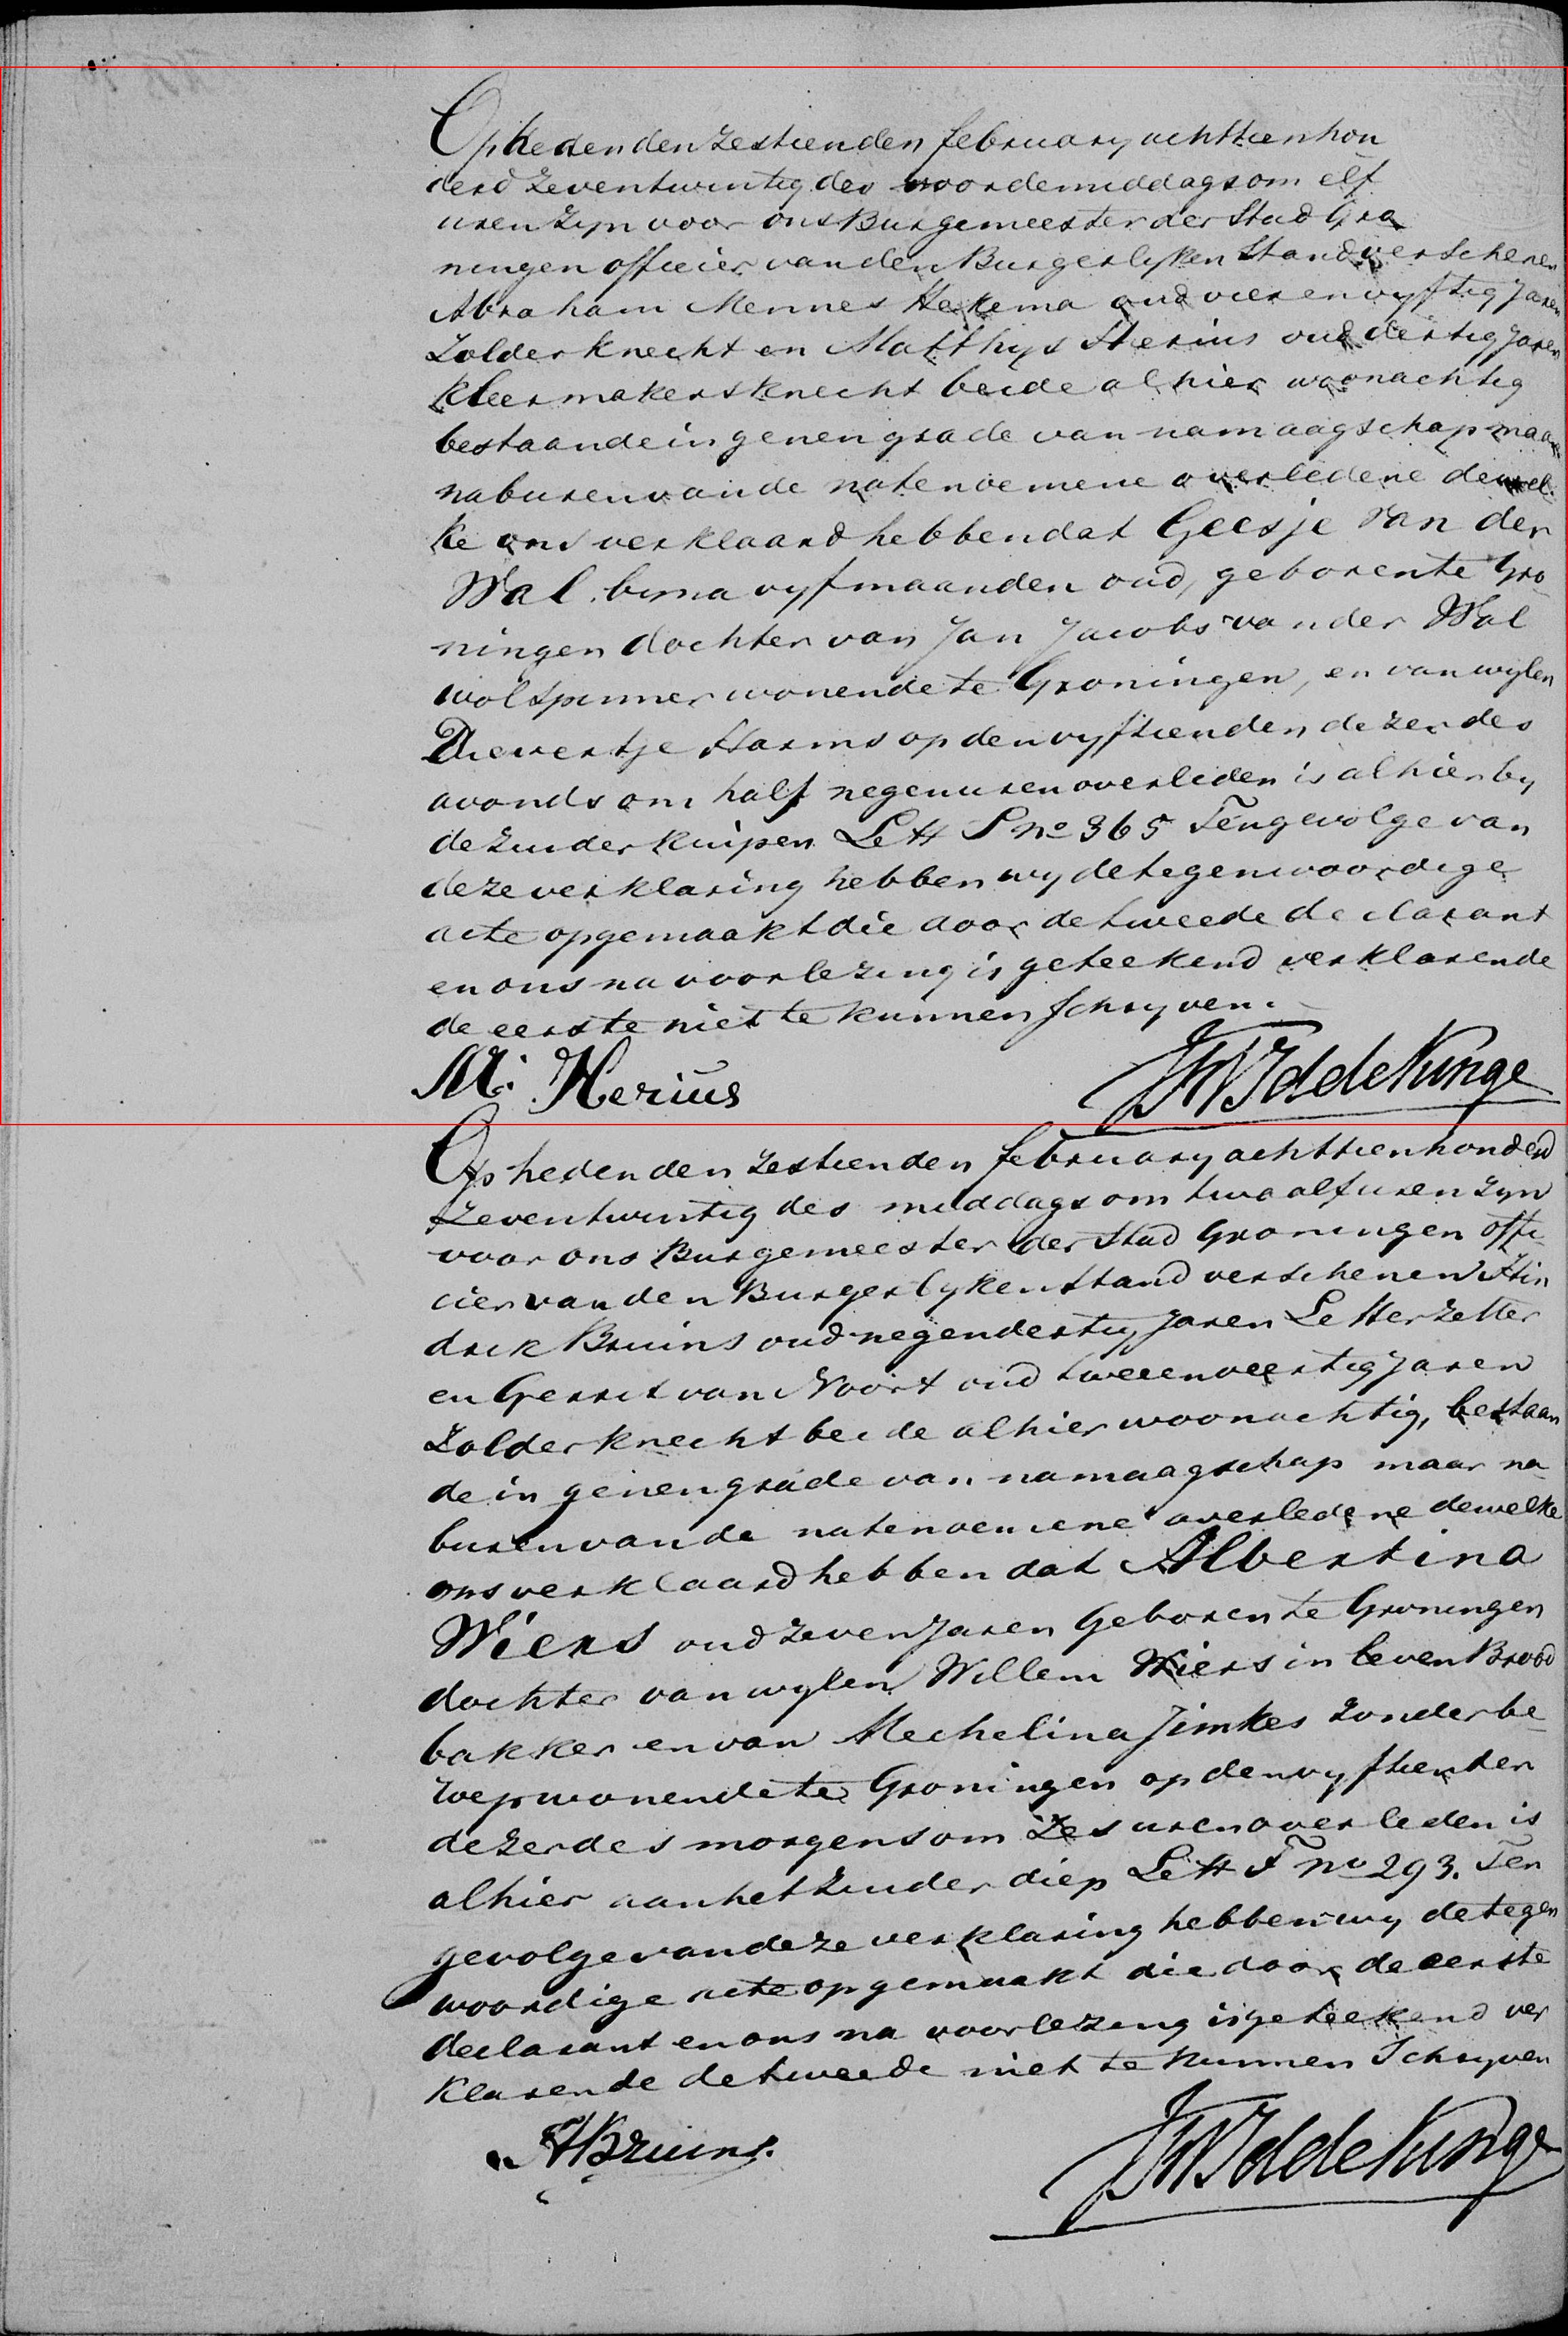 Op heden den zestienden february achttienhon
derd zeventwintig des voordemiddags om elf
uren zyn voor ons Burgemeester der Stad Gro
ningen officier van den Burgerlyken Stand verschenen
Abraham Mennes Hekema oud vierenvyftig Jaren
Zolderknecht en Matthys Herius oud dertig Jaren
kleermakersknecht beide alhier woonachtig
bestaande in genen grade van namaagschap maar
naburen van de natenoemene overledene dewel
ke ons verklaard hebben dat Geesje van der
Wal, byna vyf maanden oud, geboren te Gro
ningen dochter van Jan Jacobs van der Wal
wolspinner wonende te Groningen, en van wylen
Dievertje Harms op den vyftienden dezer des
avonds om half negen uren overleden is alhier by
de Zuiderkuipen Lett S no 365 Tengevolge van
deze verklaring hebben wy de tegenwoordige
acte opgemaakt die door de tweede declarant
en ons na voorlezing is geteekend verklarende
de eerste niet te kunnen schryven.
M. Herius JWIddeKinge
Op heden den zestienden february achttienhonderd
Zeventwintig des middags om twaalf uren zyn
voor ons Burgemeester der Stad Groningen offi
cier van den Burgerlyken Stand verschenen Hin
drik Bruins oud negendertig Jaren Letterzetter
en Gerrit van Noort oud tweeenveertig Jaren
Zolderknecht beide alhier woonachtig, bestaan
de in genen grade van namaagschap maar na
buren van de natenoemene overledene dewelke
ons verklaard hebben dat Albertina
Wiers oud zeven Jaren Geboren te Groningen
dochter van wylen Willem Wiers in leven Brood
bakker en van Mechelina Jimkes zonder be
roep wonende te Groningen op den vyftienden
dezer des morgens om Zes uren overleden is
alhier aan het Zuiderdiep Lett F no 293. Ten
gevolge van deze verklaring hebben wy de tegen
woordige acte opgemaakt die door de eerste
declarant en ons na voorlezing is geteekend ver
klarende de tweede niet te kunnen Schryven
HBruins. JWIddeKinge